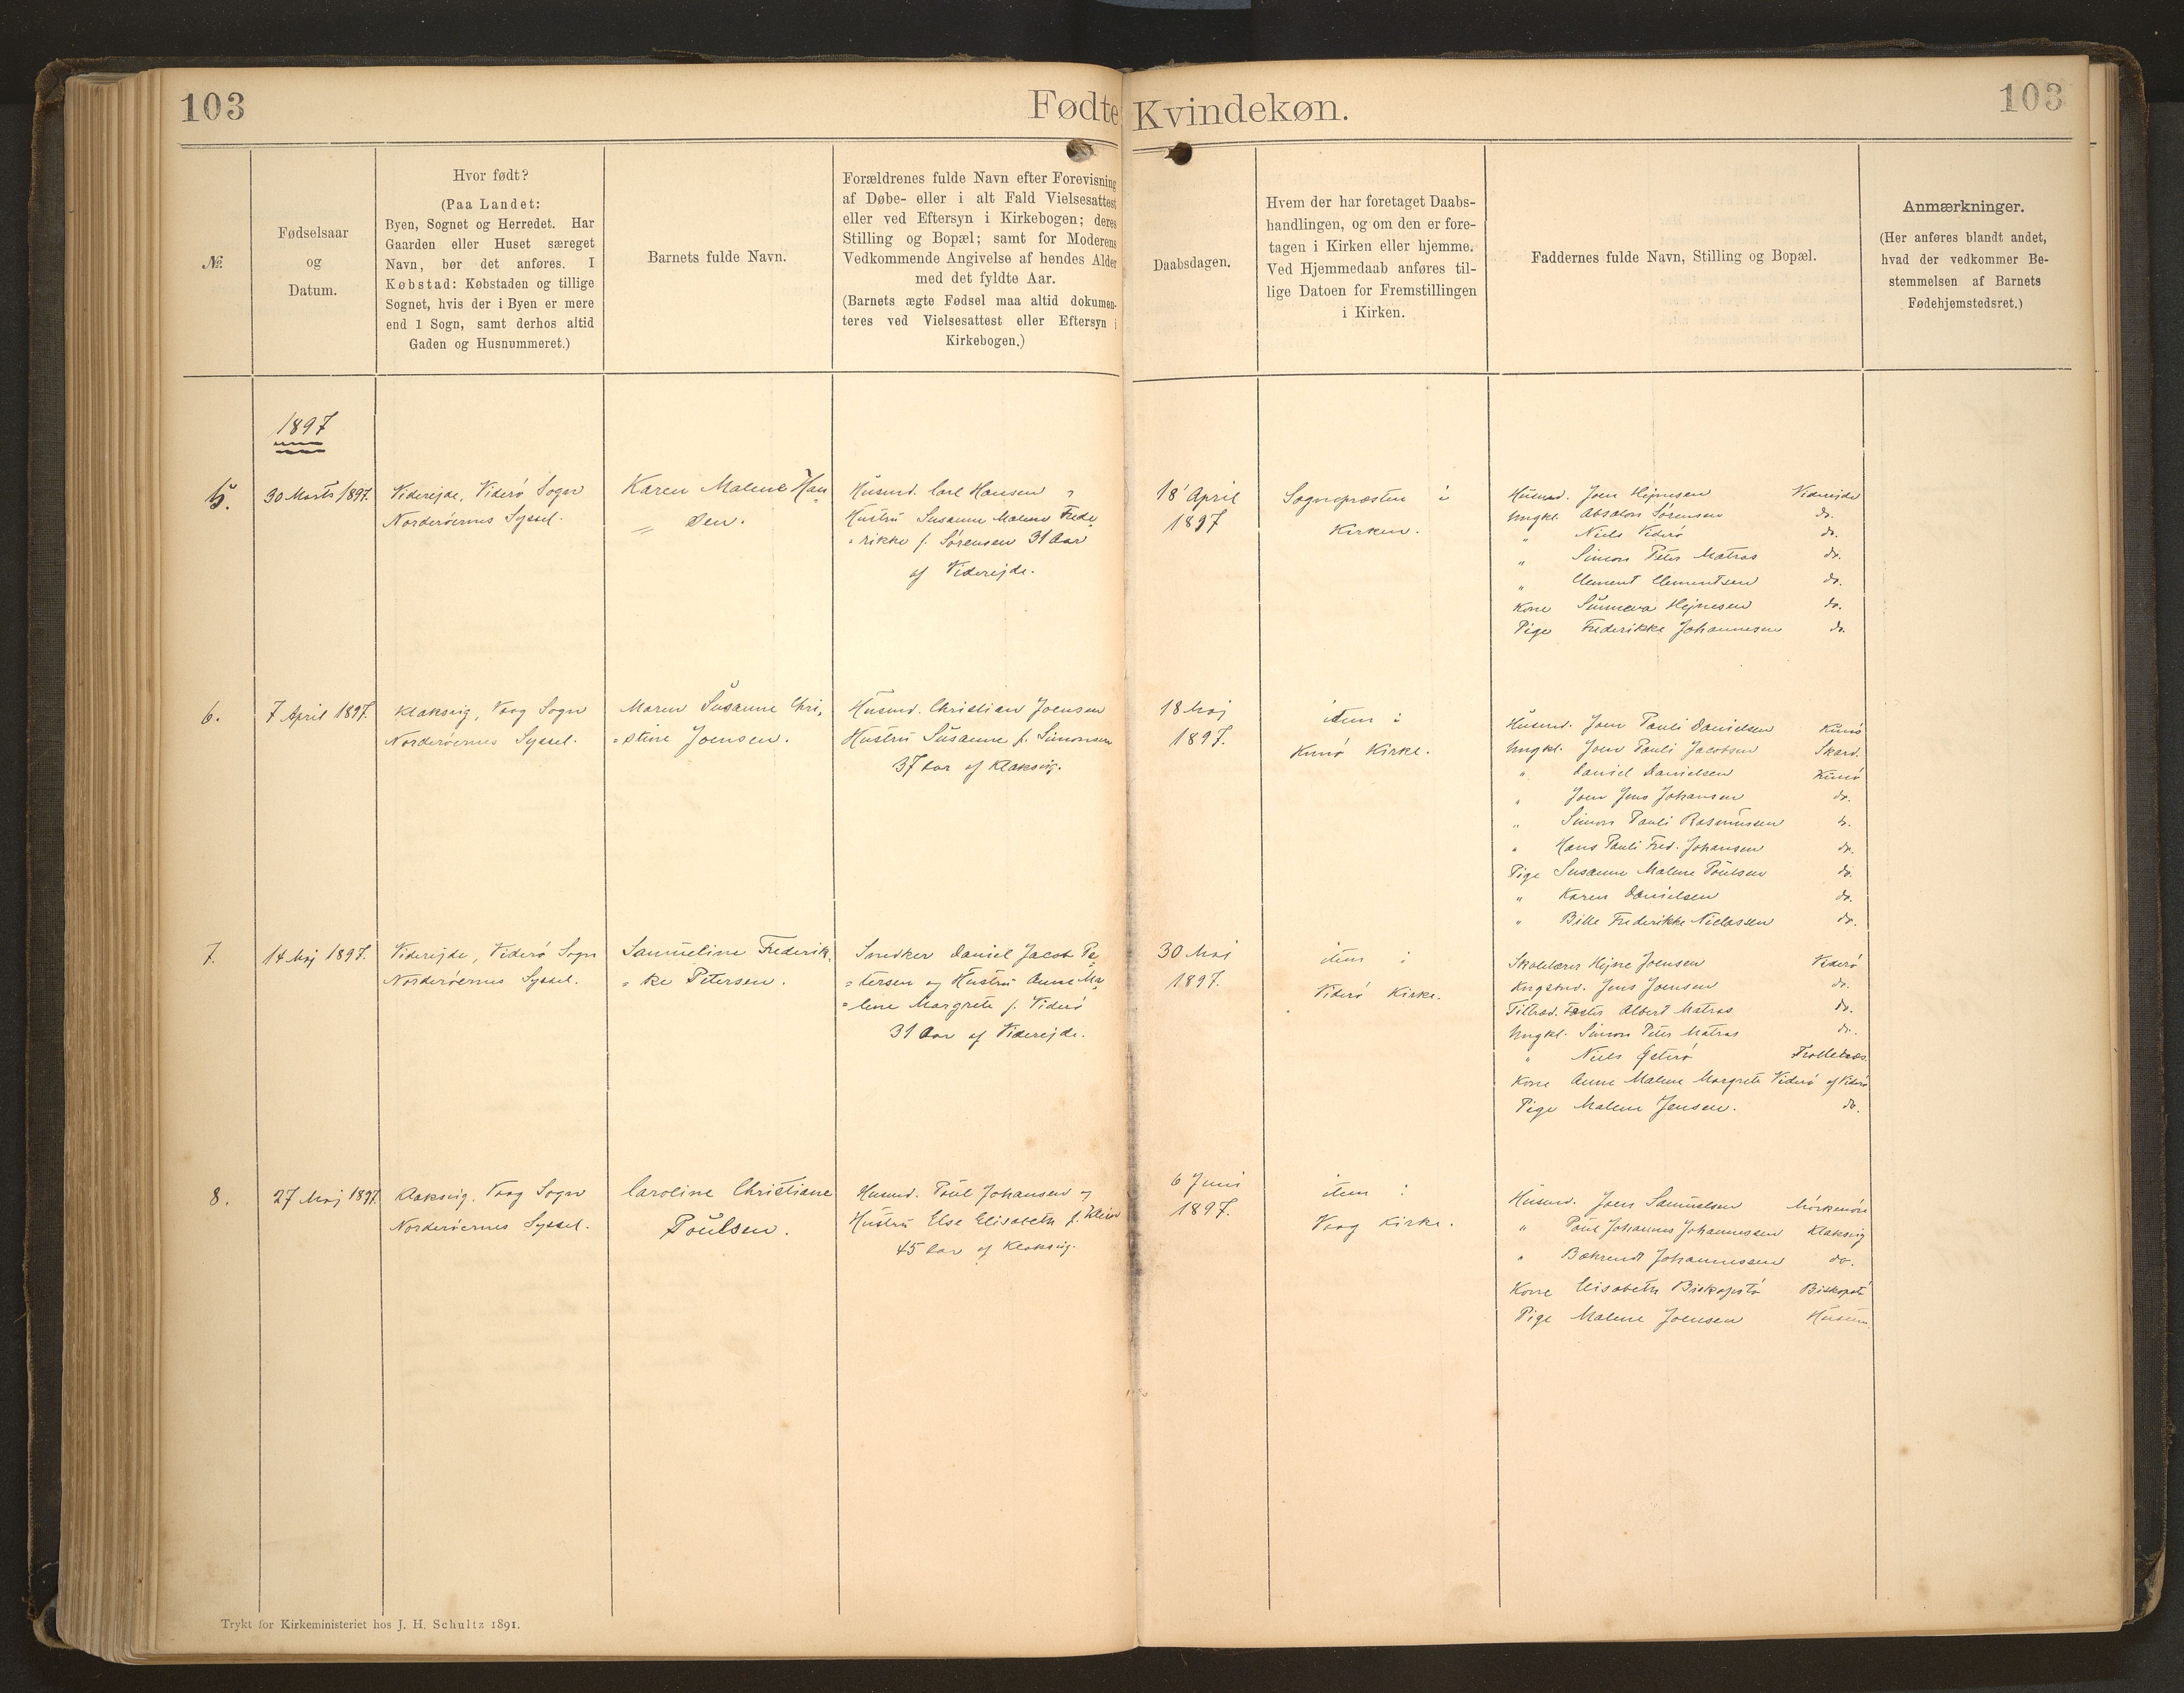 103
Fødte Kvindekøn.
103
№
Fødselsaar
og
Datum.
Hvor født?
(Paa Landet:
Byen, Sognet og Herredet. Har
Gaarden eller Huset særeget
Navn, bør det anføres. I
Købstad: Købstaden og tillige
Sognet, hvis der i Byen er mere
end 1 Sogn, samt derhos altid
Gaden og Husnummeret.)
Barnets fulde Navn.
Forældrenes fulde Navn efter Forevisning
af Døbe- eller i alt Fald Vielsesattest
eller ved Eftersyn i Kirkebogen; deres
Stilling og Bopæl; samt for Moderens
Vedkommende Angivelse af hendes Alder
med det fyldte Aar.
(Barnets ægte Fødsel maa altid dokumen-
teres ved Vielsesattest eller Eftersyn i
Kirkebogen.)
Daabsdagen.
Hvem der har foretaget Daabs-
handlingen, og om den er fore-
tagen i Kirken eller hjemme.
Ved Hjemmedaab anføres til-
lige Datoen for Fremstillingen
i Kirken.
Faddernes fulde Navn, Stilling og Bopæl.
Anmærkninger.
(Her anføres blandt andet,
hvad der vedkommer Be-
stemmelsen af Barnets
Fødehjemstedsret.)
1897
5.
30 Marts 1897.
Viderejde, Viderø Sogn
Norderøernes Syssel.
Karen Malene Han
= sen.
Husmd. Carl Hansen og
Hustru Susanne Malene Frede
= rikke f. Sørensen 31 Aar
af Viderejde.
18' April
1897
Sognepræsten i
Kirken.
Husmd. Joen Hejnesen Viderejde
Ungkl. Absalon Sørensen do.
" Niels Viderø do.
" Simon Peter Matras do.
" Clement Clementsen do.
Kone Sunneva Hejnesen do.
Pige Frederikke Johannesen do.
6.
7 April 1897.
Klaksvig, Vaag Sogn
Norderøernes Syssel.
Maren Susanne Chri,
= stine Joensen.
Husmd. Christian Joensen
Hustru Susanne f. Simonsen
37 Aar af Klaksvig.
18 Maj
1897.
item i
Kunø Kirke.
Husmd. Joen Pauli Danielsen Kunø
Ungkl. Joen Pauli Jacobsen Skard.
" Daniel Danielsen Kunø
" Joen Jens Johansen do.
" Simon Pauli Rasmussen do.
" Hans Pauli Fred. Johansen do.
Pige Susanne Malene Poulsen do.
" Karen Danielsen do.
" Bille Frederikke Niclassen do.
7.
14 Maj 1897.
Viderejde, Viderø Sogn
Norderøernes Syssel.
Samueline Frederik,
= ke Petersen.
Snedker Daniel Jacob Pe
= tersen og Hustru Anne Ma
= lene Margrete f. Viderø
31 Aar af Viderejde.
30 Maj
1897.
item i
Viderø Kirke.
Skolelærer Hejne Joensen Viderø
Kngsbnd. Jens Joensen do.
Tiltræd. Fæster Albert Matras do.
Ungkl. Simon Peter Matras do.
" Niels Østerø Trollenæs.
Kone Anne Malene Margrete Viderø af Viderø
Pige Malene Jensen. do.
8.
27 Maj 1897.
Klaksvig. Vaag Sogn
Norderøernes Syssel.
Caroline Christiane
Poulsen.
Husmd. Poul Johansen og
Hustru Else Elisabeth f. Klein
45 Aar af Klaksvig.
6 Juni
1897.
item i
Vaag Kirke.
Husmd. Joen Samuelsen Mörkenöre
" Poul Johannes Johannessen Klaksvig
" Bæhrendt Johannessen do.
Kone Elisabeth Biskopstö Biskopstö
Pige Malene Joensen Husum.
Trykt for Kirkeministeriet hos J. H. Schultz 1891.